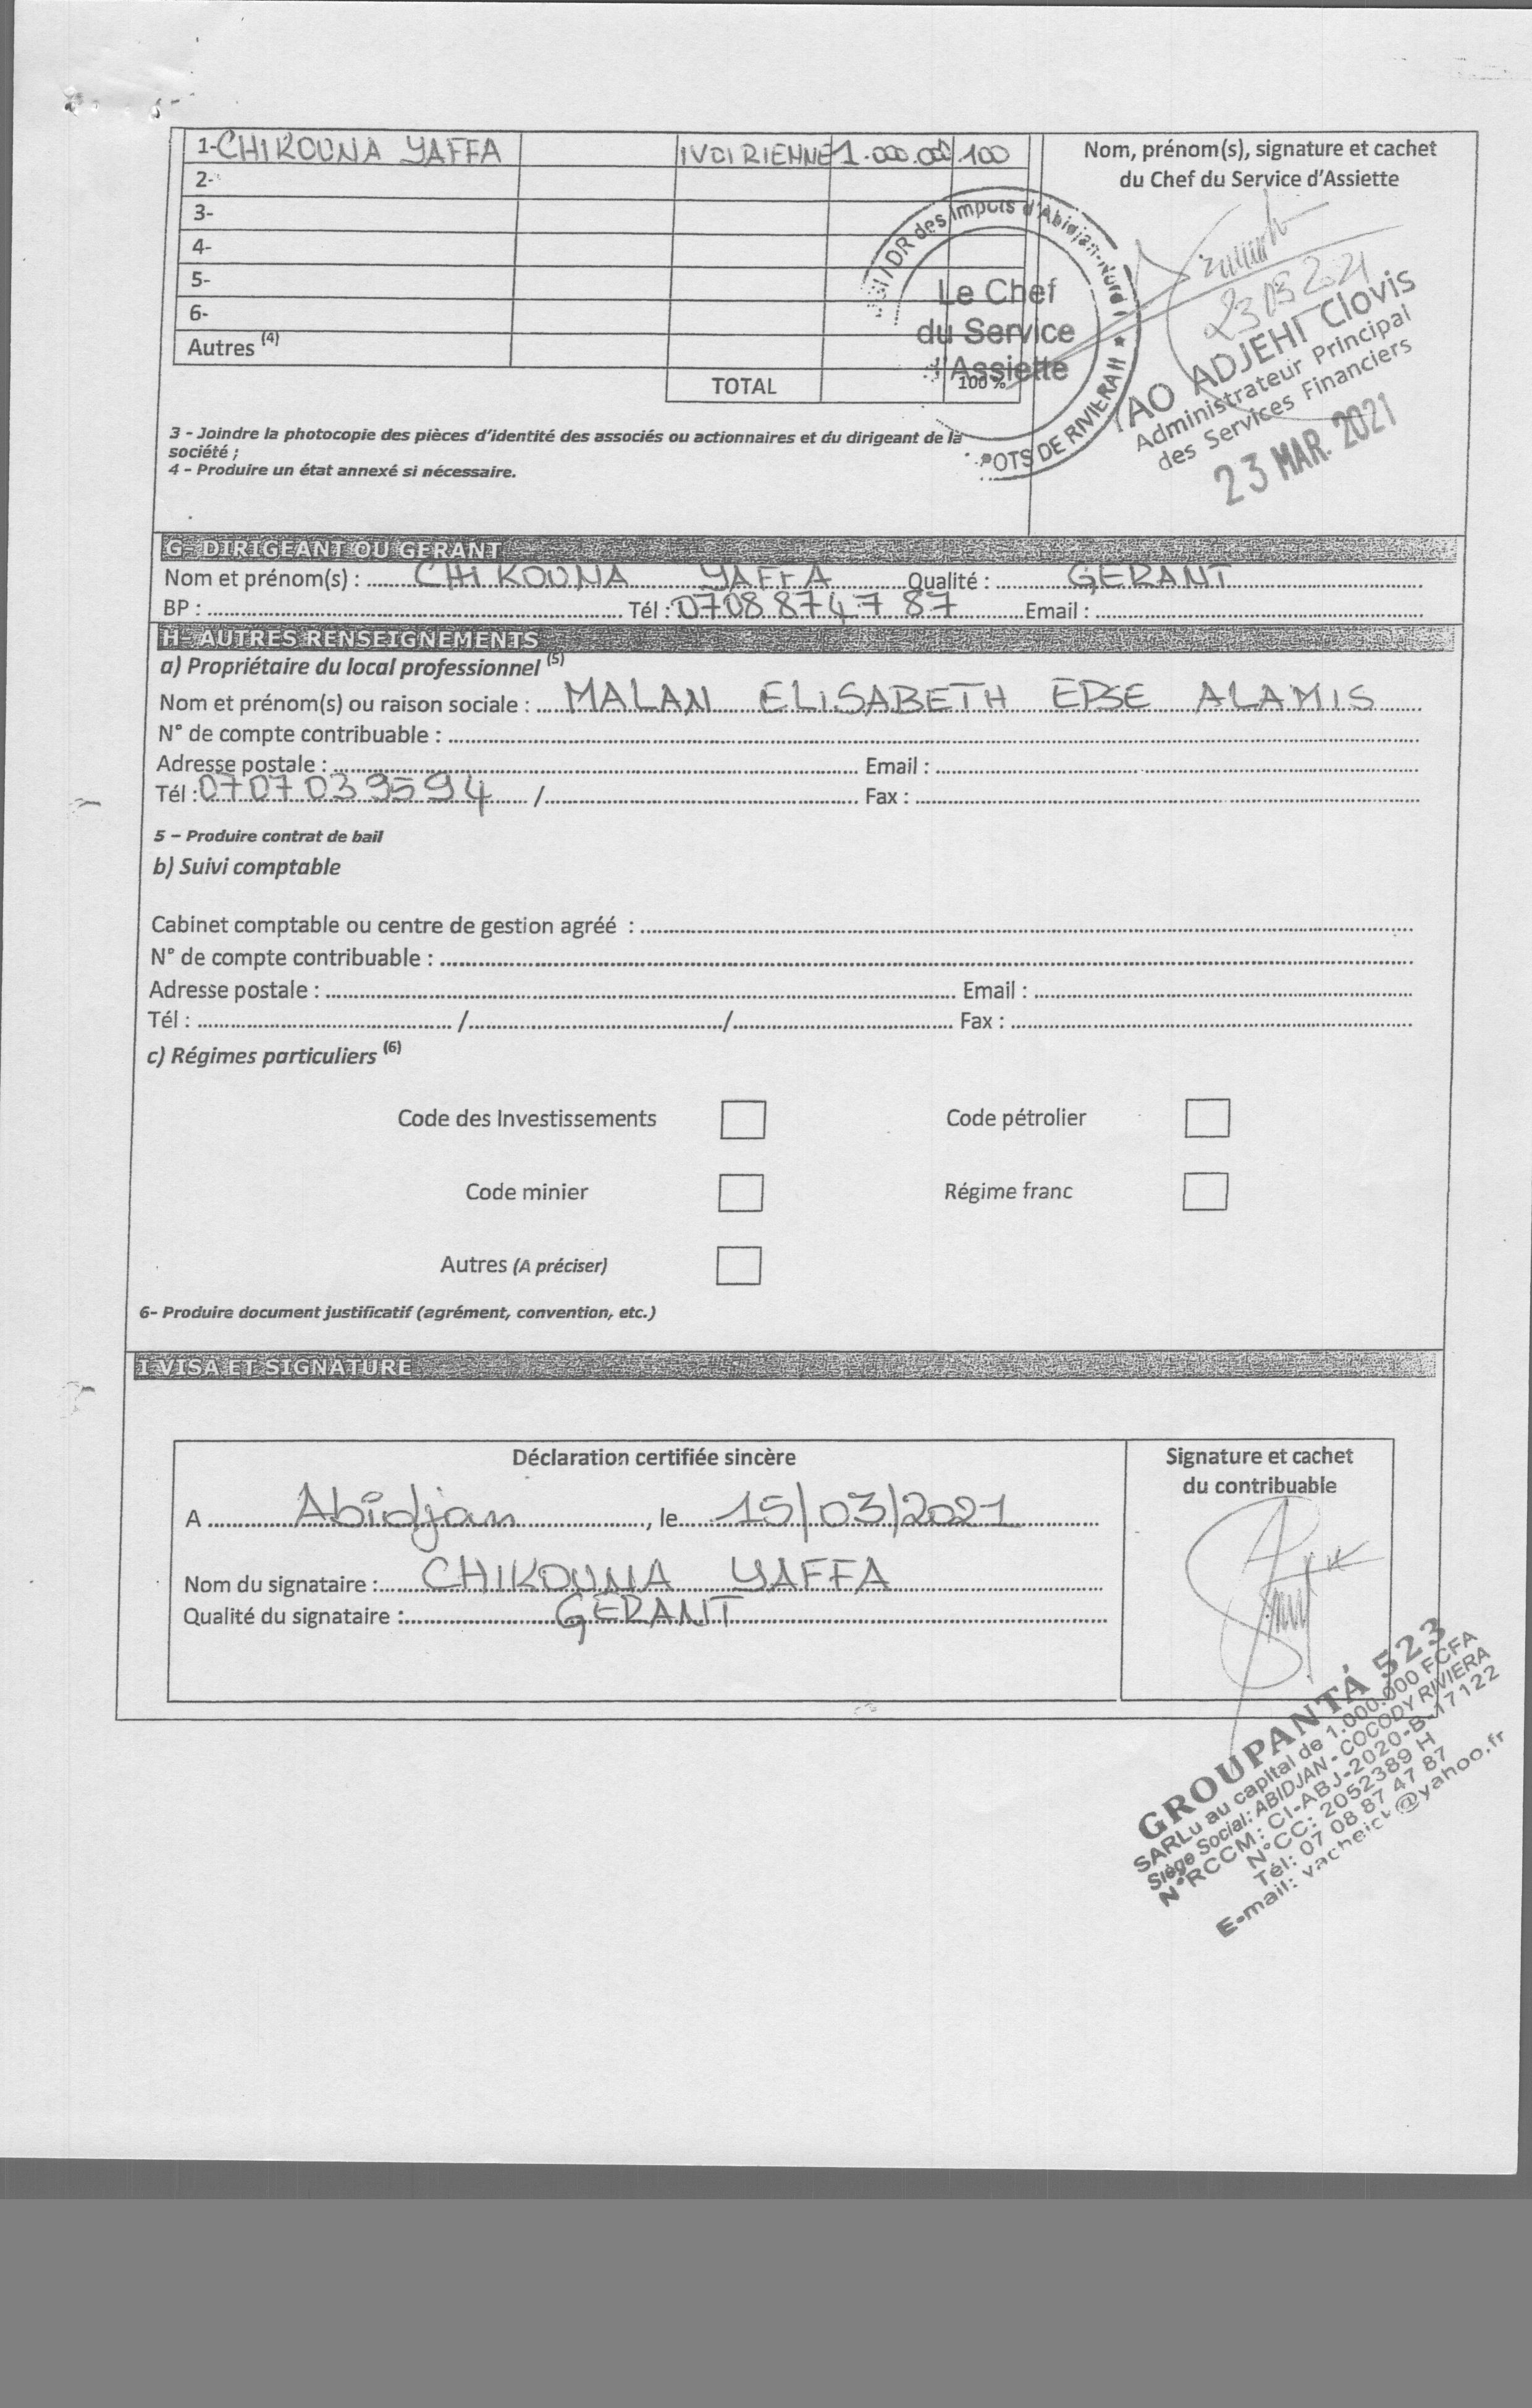 1-CHIKOUNA YAFFA IVOIRIENNE 1.000.000 100
2-
3-
4-
5-
6-
Autres (4)
TOTAL 100 %
Nom, prénom(s), signature et cachet
du Chef du Service d'Assiette
DR des Impots d'Abidjan-Nord
Le Chef
du Service
d'Assiette
DE RIVIERA II *
23 03 2021
YAO ADJEHI Clovis
Administrateur Principal
des Services Financiers
23 MAR. 2021
3 - Joindre la photocopie des pièces d'identité des associés ou actionnaires et du dirigeant de la
société ;
4 - Produire un état annexé si nécessaire.
G- DIRIGEANT OU GERANT
Nom et prénom(s) : CHIKOUNA YAFFA Qualité : GERANT
BP : Tél : 0708874787 Email :
H- AUTRES RENSEIGNEMENTS
a) Propriétaire du local professionnel (5)
Nom et prénom(s) ou raison sociale : MALAN ELISABETH EPSE ALAMIS
N° de compte contribuable :
Adresse postale : Email :
Tél : 0707039594 / Fax :
5 – Produire contrat de bail
b) Suivi comptable
Cabinet comptable ou centre de gestion agréé :
N° de compte contribuable :
Adresse postale : Email :
Tél : / / Fax :
c) Régimes particuliers (6)
Code des Investissements Code pétrolier
Code minier Régime franc
Autres (A préciser)
6- Produire document justificatif (agrément, convention, etc.)
I VISA ET SIGNATURE
Déclaration certifiée sincère
A Abidjan, le 15/03/2021
Nom du signataire : CHIKOUNA YAFFA
Qualité du signataire : GERANT
Signature et cachet
du contribuable
GROUPANTA 523
SARLu au capital de 1.000.000 FCFA
Siège Social: ABIDJAN - COCODY RIVIERA
N°RCCM: CI-ABJ-2020-B-17122
N°CC: 2052389 H
Tél: 07 08 87 47 87
E-mail: @yahoo.fr